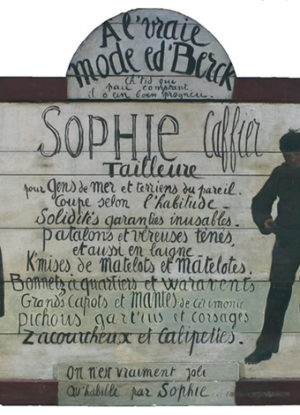 A l'vraie
Mode ed'Berck
Ch'ti qui
paie comptant
il o ein boin
SOPHIE Caffier
Tailleure
pour gens de mer et terriens du pareil.
Coupe selon l'habitude -
Solidités garanties inusables.
Patalons et vireuses tenes,
et aussi en laigne
K'mises de Matelots et mâtelotes.
Bonnets à quartiers et waravents
Grands capots et mantes de cérimonie
Pichous, gart'ius et corsages
Zacourcheux et Calipettes.
On n'est vraiment joli
Qu'habillé par Sophie...